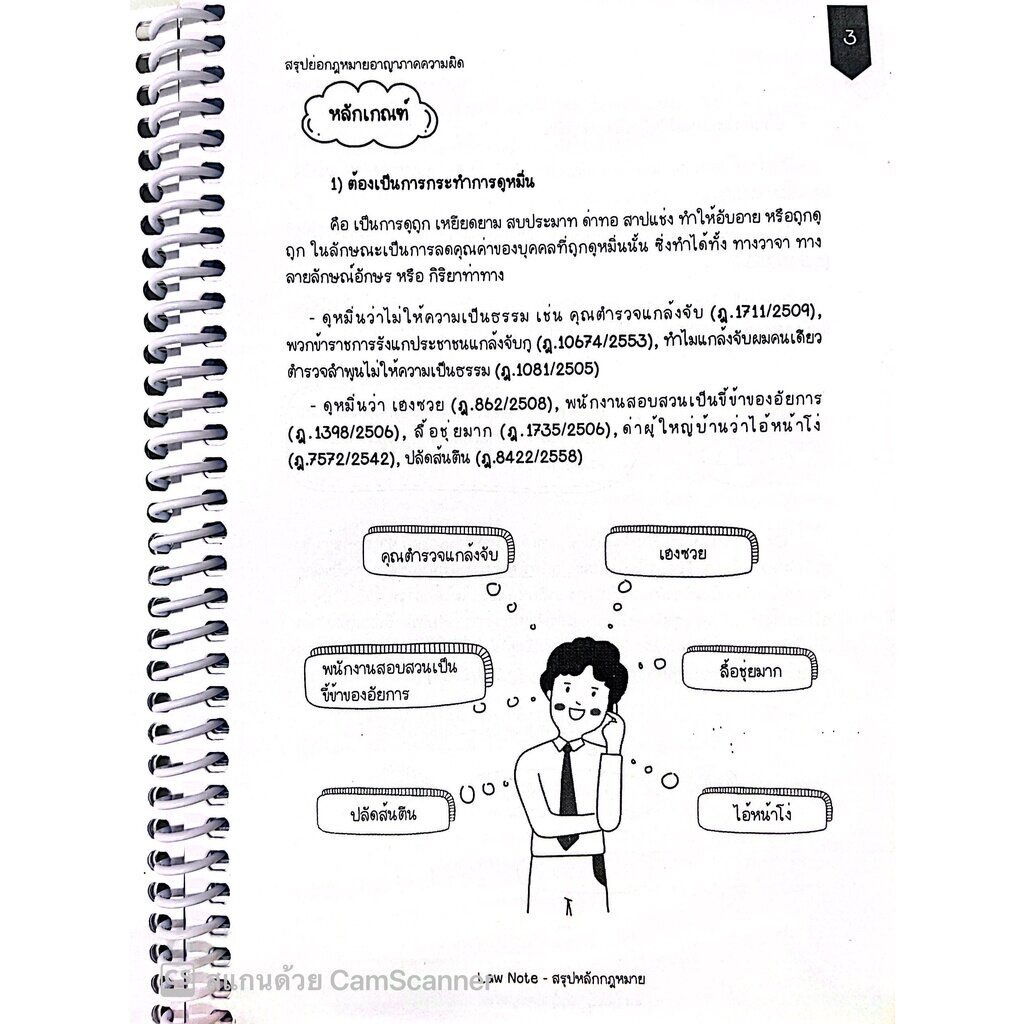 3
สรุปย่อกฎหมายอาญาภาคความผิด
หลักเกณฑ์
1) ต้องเป็นการกระทำการดูหมิ่น
คือ เป็นการดูถูก เหยียดยาม สบประมาท ด่าทอ สาปแช่ง ทำให้อับอาย หรือถูกดู
ถูก ในลักษณะเป็นการลดคุณค่าของบุคคลที่ถูกดูหมิ่นนั้น ซึ่งทำได้ทั้ง ทางวาจา ทาง
ลายลักษณ์อักษร หรือ กิริยาท่าทาง
- ดูหมิ่นว่าไม่ให้ความเป็นธรรม เช่น คุณตำรวจแกล้งจับ (ฎ.1711/2509),
พวกข้าราชการรังแกประชาชนแกล้งจับกู (ฎ.10674/2553), ทำไมแกล้งจับผมคนเดียว
ตำรวจลำพูนไม่ให้ความเป็นธรรม (ฎ.1081/2505)
- ดูหมิ่นว่า เฮงซวย (ฎ.862/2508), พนักงานสอบสวนเป็นขี้ข้าของอัยการ
(ฎ.1398/2506), ลื้อชุ่ยมาก (ฎ.1735/2506), ด่าผู้ใหญ่บ้านว่าไอ้หน้าโง่
(ฎ.7572/2542), ปลัดส้นตีน (ฎ.8422/2558)
คุณตำรวจแกล้งจับ
เฮงซวย
พนักงานสอบสวนเป็น
ขี้ข้าของอัยการ
ลื้อชุ่ยมาก
ปลัดส้นตีน
ไอ้หน้าโง่
Law Note - สรุปหลักกฎหมาย
CS สแกนด้วย CamScanner